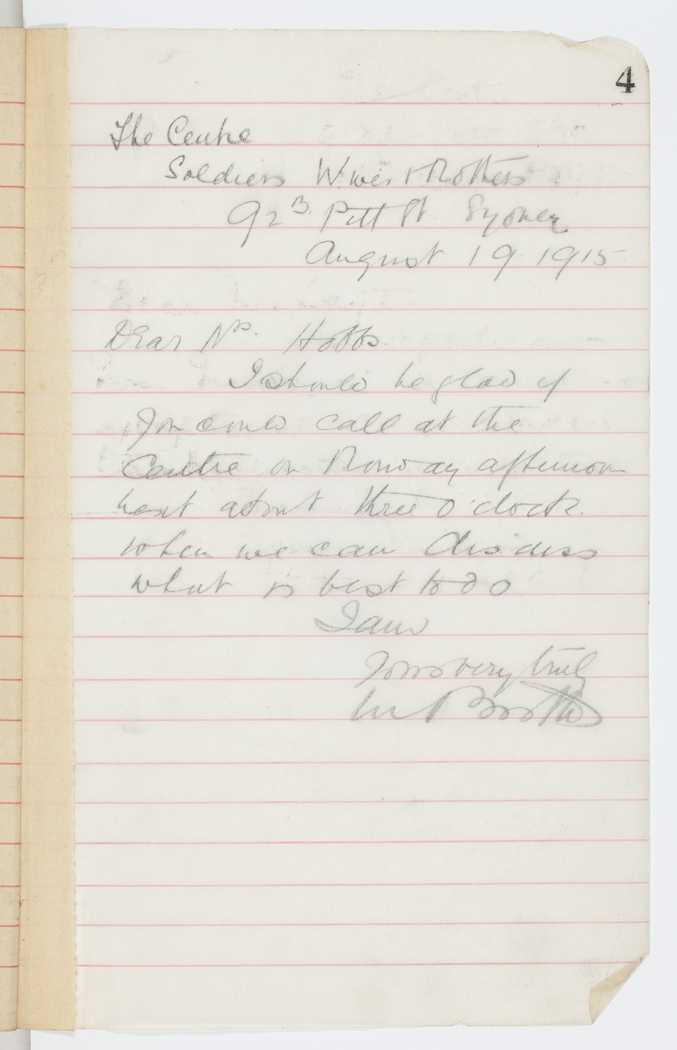 4
The Centre
Soldiers Wives & Mothers
92B Pitt St. Sydney
August 19. 1915
Dear Mrs. Hobbs.
I should be glad if
you could call at the
Centre on Monday afternoon
next about three o'clock.
when we can discuss
what is best to do
I am
Yours very truly
M Booth